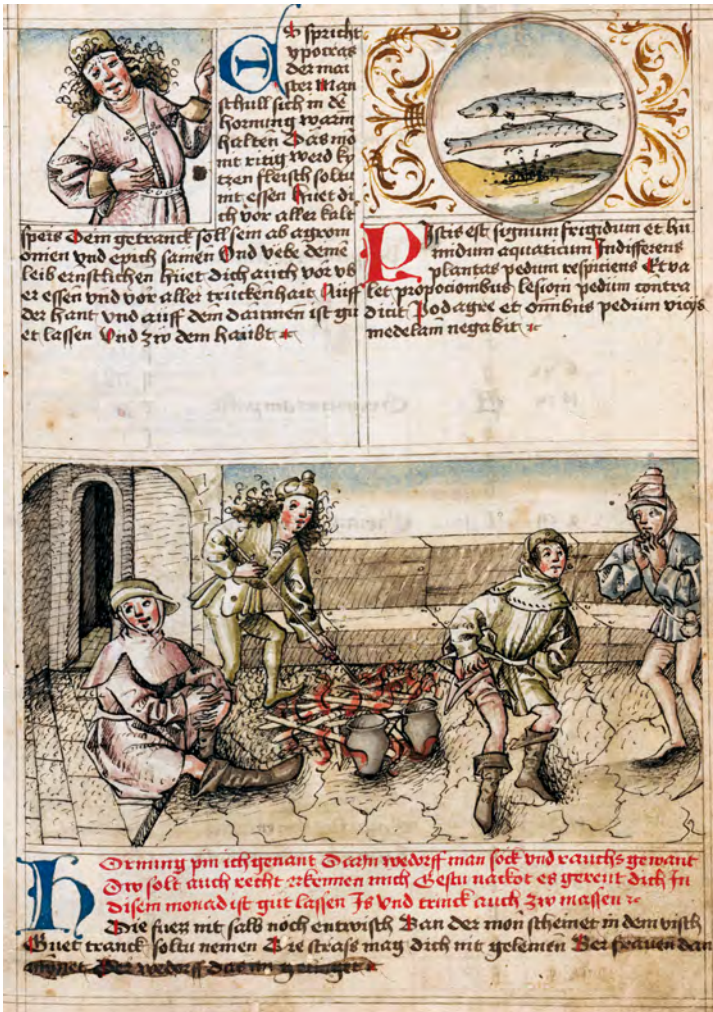 Es spricht
ypocras
der mai
ster Man
schull sich in de
hornung warm
halten Das mo
nit ritig werd ky
tzen fleisch soltu
nit essen Huet di
ch vor aller kalt
speis Dein getranck soll sein ab agrom
onien vnd epich samen Vnd vebe deinē
leib ernstlichen huet dich auch vor vb
er essen vnd vor aller trunckenhait Auff
der hant vnd auff dem daumen ist gu
et lassen Vnd zw dem haubt
Piscis est signum frigidum et hu
midum aquaticum Indifferens
plantas pedum respiciens Et va
let propocionibus lesiom pedum contra
dicit Podagre et omnibus pedum vicys
medelam negabit
Hornung pin ich genant Darin wedorff man sock vnd rauchs gewant
Dw solt auch recht erkennen mich Gestu nackot es gerent dich In
disem monad ist gut lassen Is vnd trinck auch zw massen
Die fuez nit salb noch entwisch Wan der mon scheinet in dem visch
Guet tranck soltu nemen Die strass mag dich nit gelemen Bei frauen dan
Der wedorff